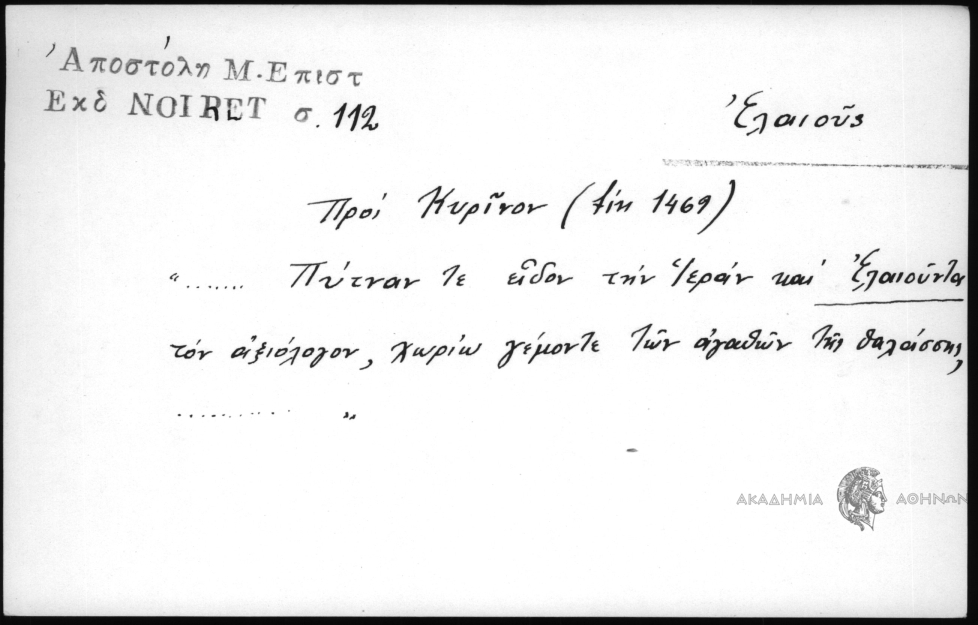 Ἀποστόλη Μ. Επιστ
Εκδ NOIRET σ. 112
Ἐλαιοῦς
Πρός Κυρῖνον (τέλη 1469)
"....... Πύτναν τε εἶδον τήν Ἱεράν καί Ἐλαιοῦντα
τόν ἀξιόλογον, χωρίω γέμοντε τῶν ἀγαθῶν τῆς θαλάσσης,
............ "
ΑΚΑΔΗΜΙΑ ΑΘΗΝΩΝ